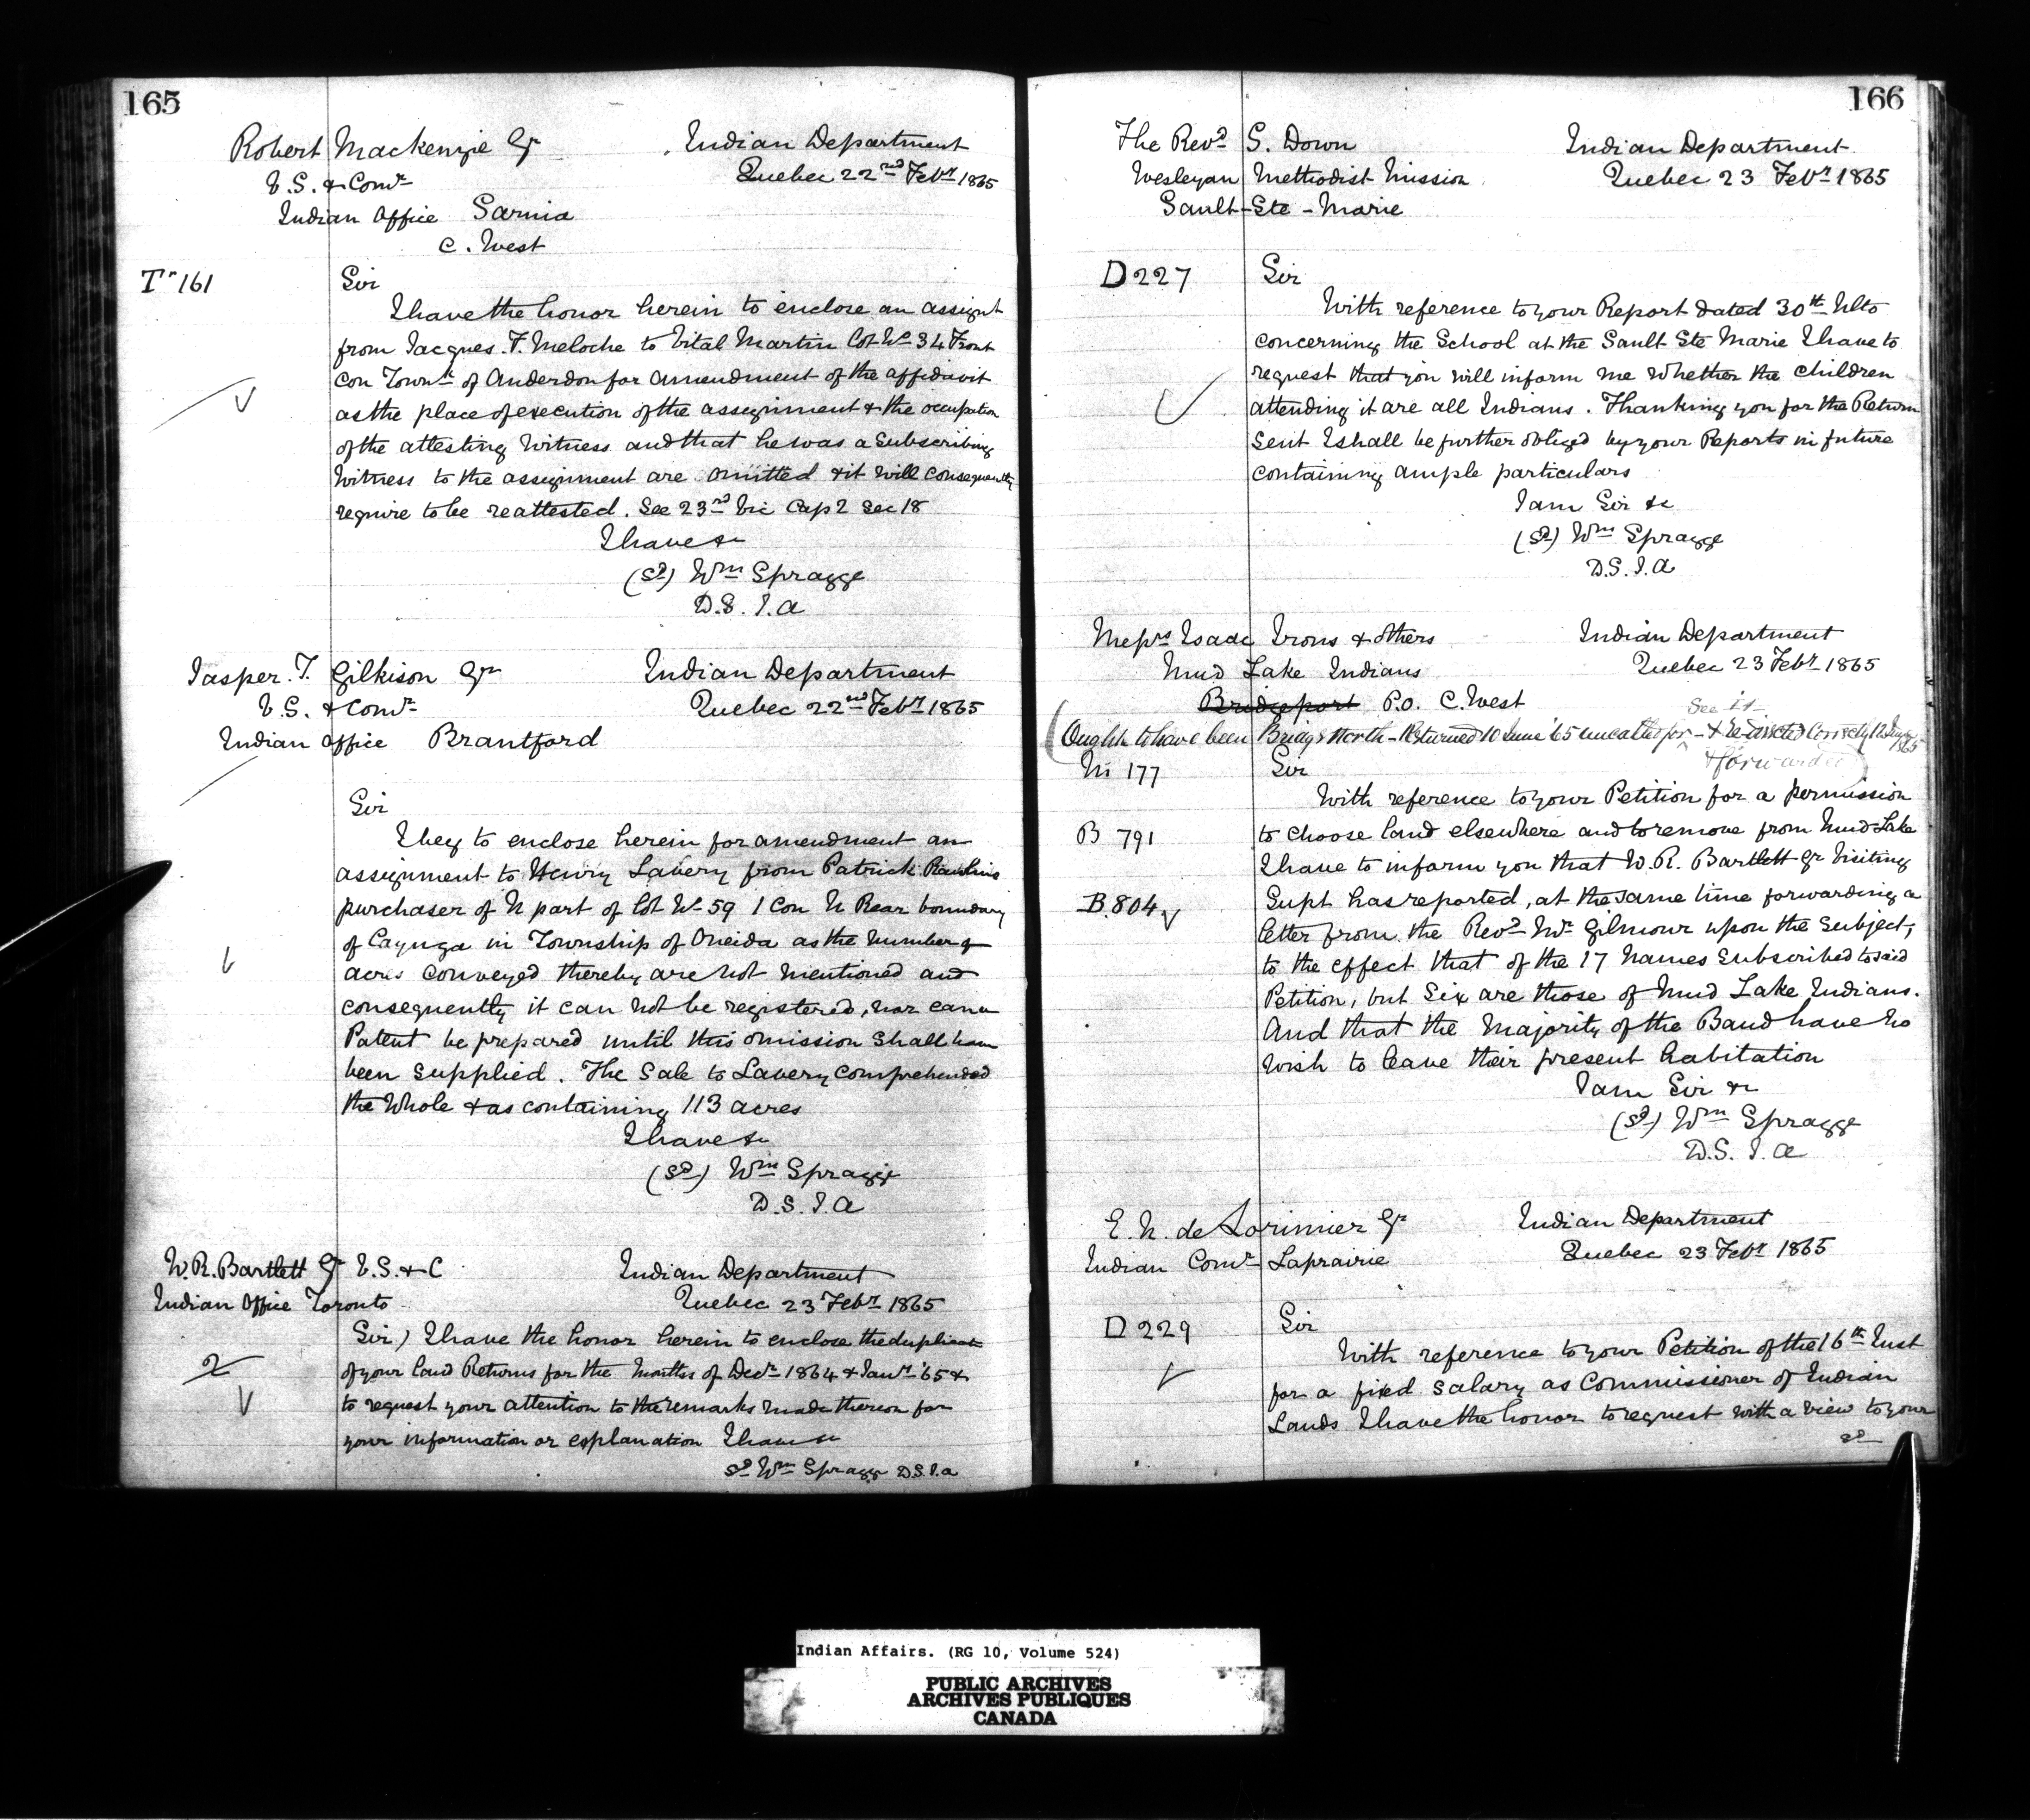 165
Robert Mackenzie Esqr
V.S. & Comr
Indian Office Sarnia
C. West
Indian Department
Quebec 22nd Febry 1865
T 161
Sir
I have the honor herein to enclose an assignt
from Jacques. F. Meloche to Vital Martin Lot No 34 Front
Con Townsh of Anderdon for amendment of the affidavit
as the place of execution of the assignment & the occupation
of the attesting Witness and that he was a Subscribing
Witness to the assignment are omitted & it will consequently
require to be reattested. See 23rd Vic Cap 2 Sec 18
I have &c
(Sd) Wm Spragge
D.S.I.A
Jasper. T. Gilkison Esqr
V.S. & Comr
Indian Office Brantford
Indian Department
Quebec 22nd Febry 1865
Sir
I beg to enclose herein for amendment an
assignment to Henry Lavery from Patrick Rawlins
purchaser of N part of Lot No 59 1 Con N Rear boundary
of Cayuga in Township of Oneida as the number of
acres conveyed thereby are not mentioned and
consequently it can not be registered, nor can a
Patent be prepared until this omission shall have
been supplied. The Sale to Lavery comprehended
the Whole & as containing 113 acres
I have &c
(Sd) Wm Spragge
D.S.I.A
W.R. Bartlett Esqr V.S. & C
Indian Office Toronto
Indian Department
Quebec 23 Febry 1865
2
Sir) I have the honor herein to enclose the duplicate
of your Land Returns for the Months of Decr 1864 & Jany '65 &
to request your attention to the remarks made thereon for
your information or explanation I have &c
Sd Wm Spragge D.S.I.a
166
The Revd S. Down
Wesleyan Methodist Mission
Sault-Ste-Marie
Indian Department
Quebec 23 Febry 1865
D 227
Sir
With reference to your Report dated 30th Ulto
concerning the School at the Sault Ste Marie I have to
request that you will inform me whether the children
attending it are all Indians. Thanking you for the Return
sent I shall be further obliged by your Reports in future
containing ample particulars
I am Sir &c
(Sd) Wm Spragge
D.S.I.A
Messrs Isaac Irons & others
Mud Lake Indians
Bridgeport P.O. C. West
Indian Department
Quebec 23 Febry 1865
See it
(Ought to have been Bridge North - Returned 10 June '65 uncalled for - & Re-directed Correctly 12 June 1865
& forwarded)
M 177
Sir
With reference to your Petition for a permission
B 791
to choose land elsewhere and to remove from Mud Lake
I have to inform you that W.R. Bartlett Esqr Visiting
B 804
Supt has reported, at the same time forwarding a
letter from the Revd Mr Gilmour upon the Subject,
to the effect that of the 17 Names Subscribed to said
Petition, but Six are those of Mud Lake Indians.
And that the Majority of the Band have no
wish to leave their present habitation
I am Sir &c
(Sd) Wm Spragge
D.S.I.A
E. N. de Lorimier Esqr
Indian Comr Laprairie
Indian Department
Quebec 23 Febry 1865
D 229
Sir
With reference to your Petition of the 16th Inst
for a fixed Salary as Commissioner of Indian
Lands I have the honor to request with a view to your
Indian Affairs. (RG 10, Volume 524)
PUBLIC ARCHIVES
ARCHIVES PUBLIQUES
CANADA